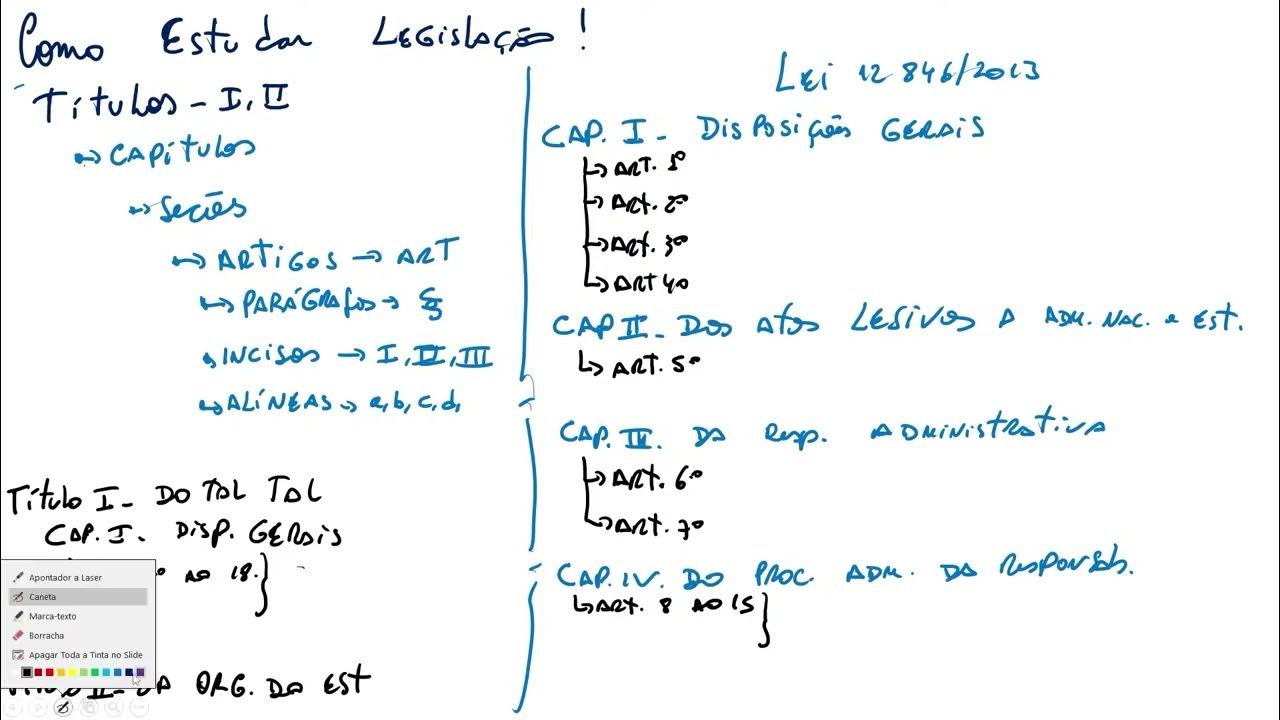 Como Estudar Legislação!
Títulos - I, II
↳ Capítulos
↳ Seções
↳ Artigos → Art
↳ Parágrafos → §
↳ Incisos → I, II, III
↳ Alíneas → a, b, c, d,
Título I - Do Tal Tal
Cap. I. Disp. Gerais
º ao 18.}
Apontador a Laser
Caneta
Marca-texto
Borracha
Apagar Toda a Tinta no Slide
Org. do Est
Lei 12 846/2013
Cap. I - Disposições Gerais
↳ Art. 1º
↳ Art. 2º
↳ Art. 3º
↳ Art 4º
Cap II - Dos Atos Lesivos a Adm. Nac. e Est.
↳ Art. 5º
Cap. III. Da Resp. Administrativa
↳ Art. 6º
↳ Art. 7º
Cap. IV. Do Proc. Adm. da Responsab.
↳ Art. 8 ao 15}